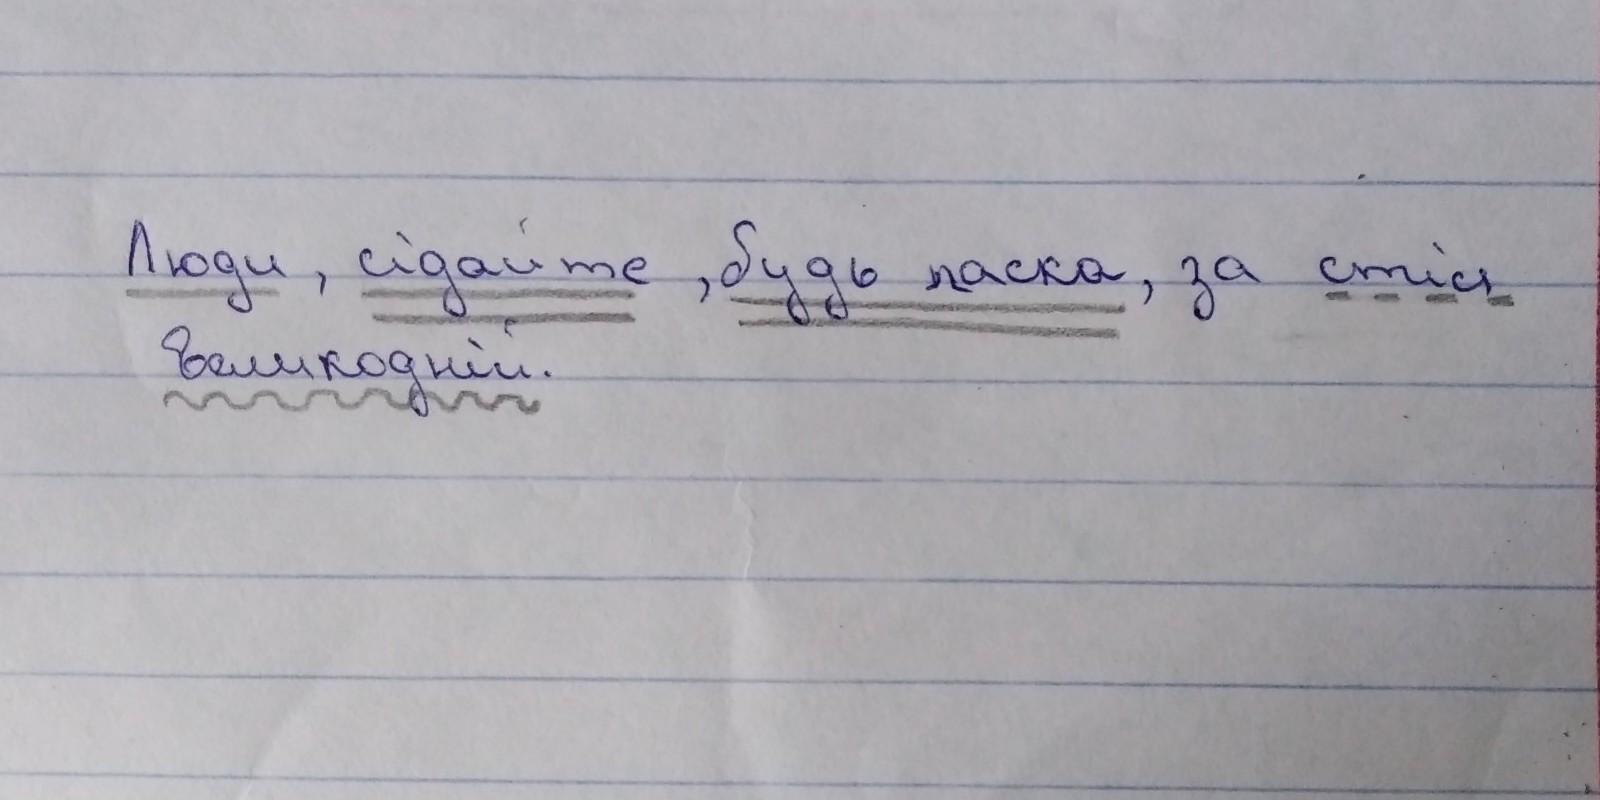 Люди, сідайте, будь ласка, за стіл
Великодній.